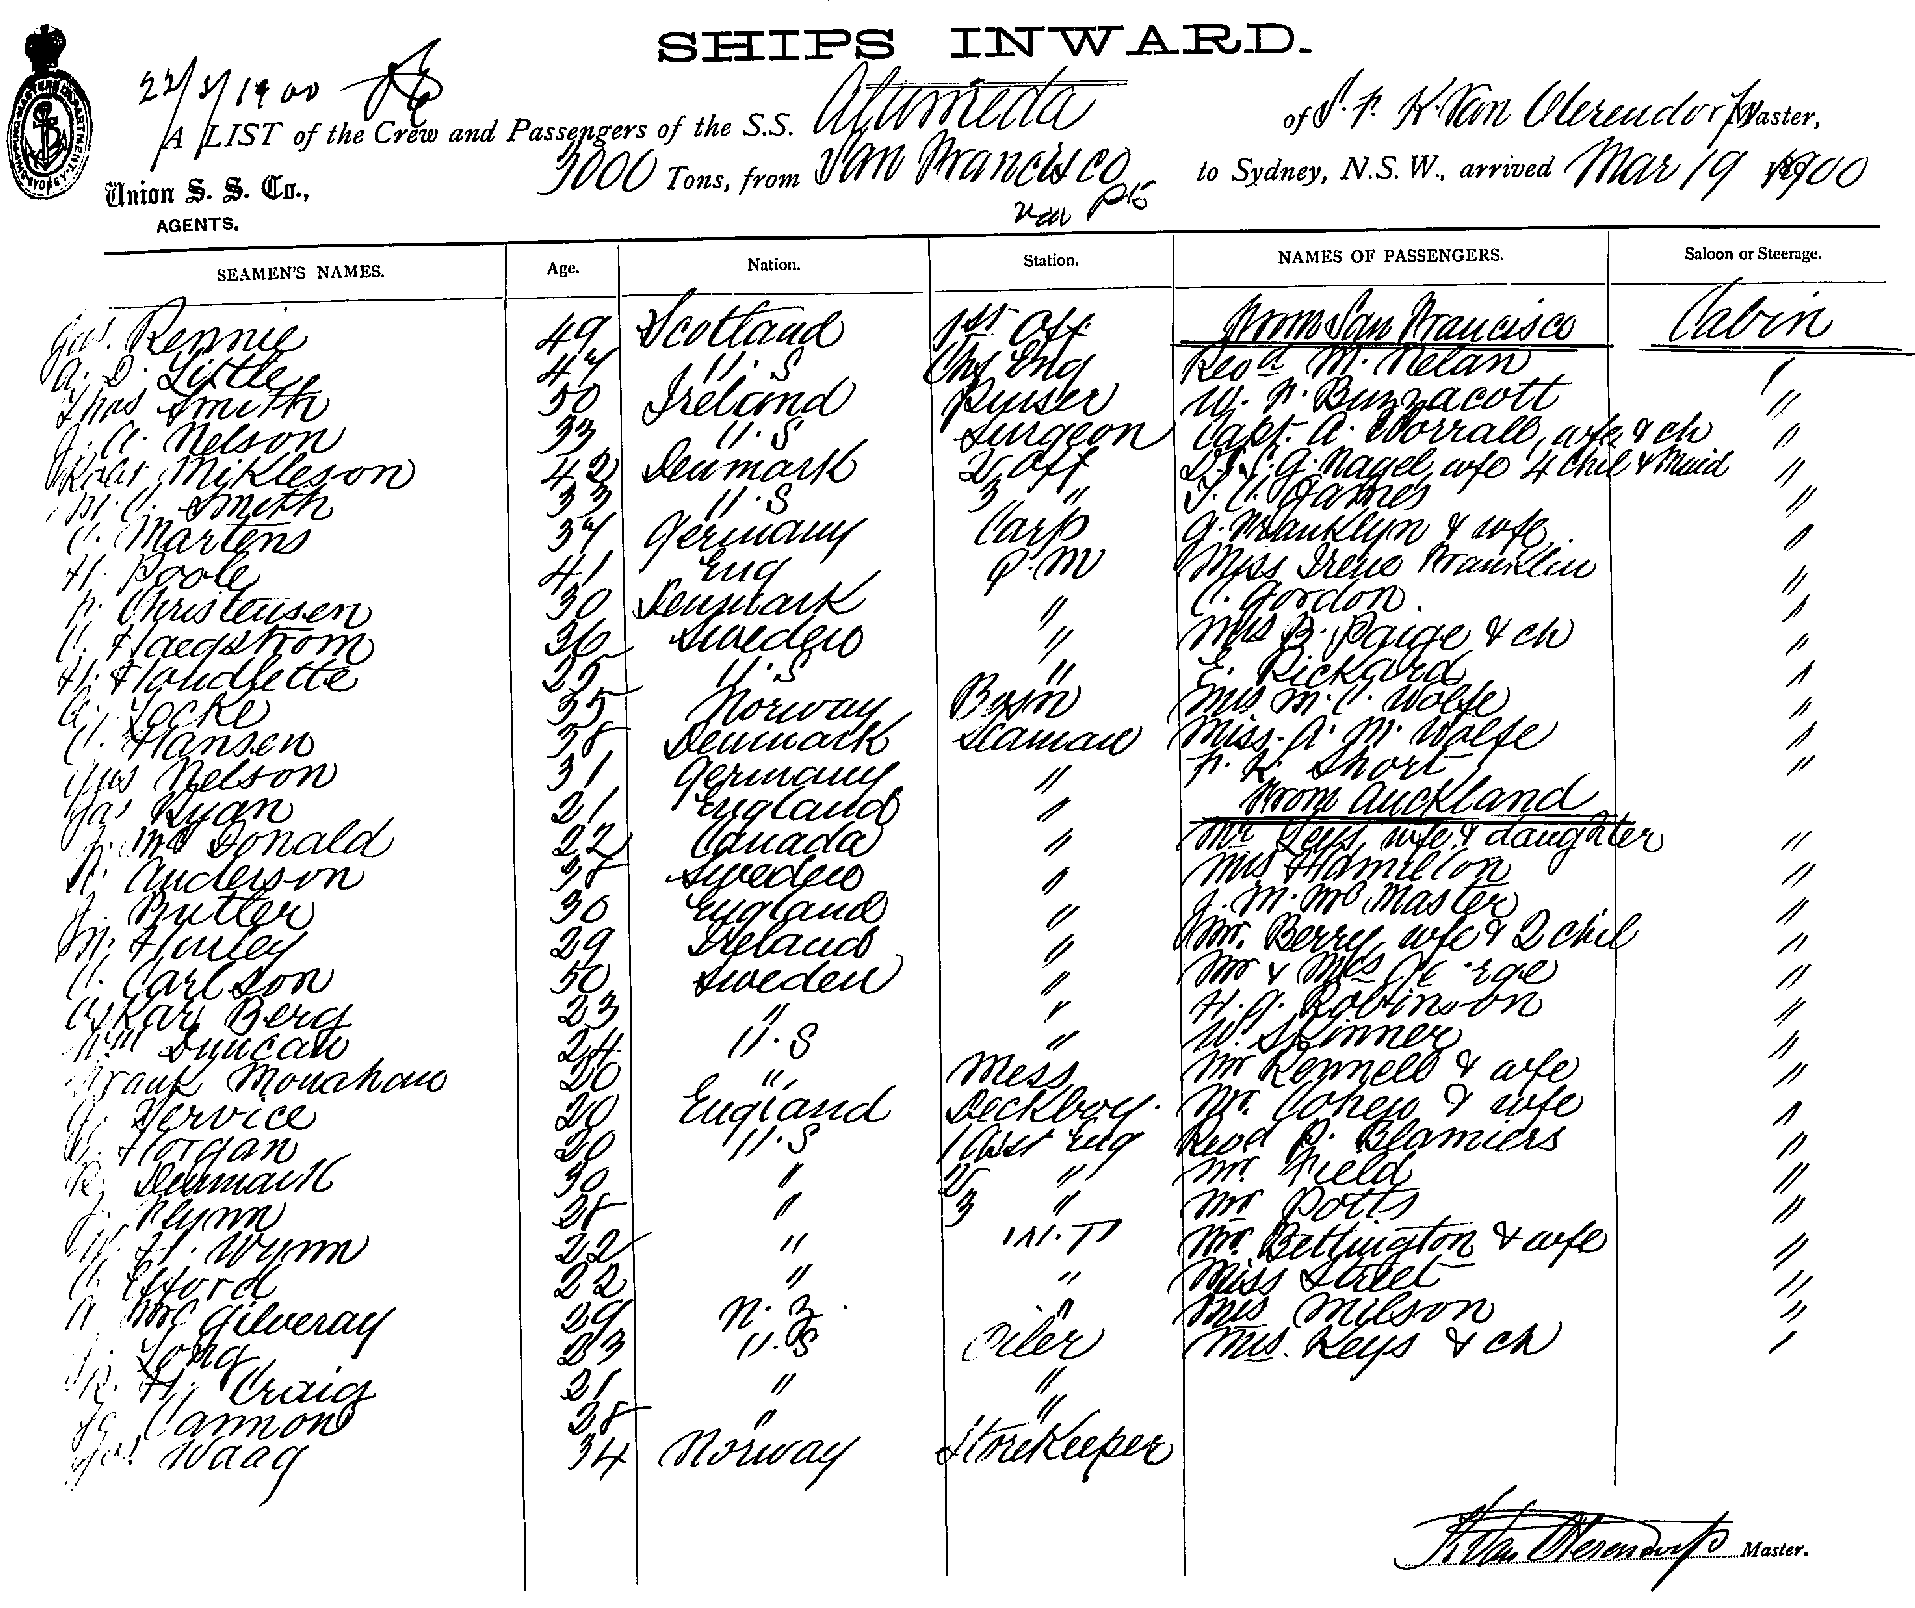 SHIPS INWARD.
22/3/1900
A LIST of the Crew and Passengers of the S.S. Alameda of S. F. H. Van Oterendorp Master,
3000 Tons, from San Francisco to Sydney, N.S.W., arrived Mar 19 1900
Union S. S. Co.,
AGENTS.
SEAMEN'S NAMES. Age. Nation. Station. NAMES OF PASSENGERS. Saloon or Steerage.
Jas. Rennie 49 Scotland 1st Off From San Francisco Cabin
A. D. Little 47 U.S Chf Eng Revd M. Nelan "
Thos Smith 50 Ireland Purser W. F. Buzzacott "
J. A. Nelson 33 U.S Surgeon Capt. A. Worrall, wfe & ch "
Mikleson 42 Denmark 2 Off Nagel, wfe 4 chil & Maid "
M. C. Smith 33 U.S 3 " James "
C. Martens 37 Germany Carp G. Franklyn & wfe "
H. Poole 41 Eng Q.M Miss Irene Franklin "
F. Christensen 30 Denmark " C. Gordon. "
C. Haegstrom 36 Sweden " Mrs B. Paige & ch "
H. Houdlette U.S " E. Rickard "
A. Locke 35 Norway Bosn Mrs M. C. Wolfe "
C. Hansen 38 Denmark Seaman Miss. A. M. Wolfe "
Nelson 31 Germany " F. K. Short "
Jas Ryan 21 England " From Auckland
J. McDonald 22 Canada " Mr Keys, wfe & daughter "
A. Anderson 38 Sweden " Mrs Hamilton "
J. Butler 30 England " J. M. McMaster "
M. Hurley 29 Ireland " Mr. Berry, wfe & 2 chil "
C. Carlson 50 Sweden " Mr & Mrs "
Oskar Berg 23 " " H. G. Robinson "
Wm Duncan 24 U.S " W. Skinner "
Frank Monahan 26 " Mess Mr Kennell & wfe "
J. Service 20 England Deckboy. Mr. Cohen & wfe "
Horgan 20 U.S 1 Asst Eng Revd P. Blamiers "
R. Denmark 30 " 2 " Mr. Field "
J. Flynn 28 " 3 " Mr Potts "
W. H. Wynn 22 " W.T Mr. Bettington & wfe "
C. Efford 22 " " Miss Street "
A McGilveray 29 N.Z. " Mrs Milson "
J. Long 23 U.S Oiler Mrs. Keys & ch "
R. H. Craig 21 " "
Cannon 28 " "
Waag 34 Norway Storekeeper
H Van Oterendorp Master.